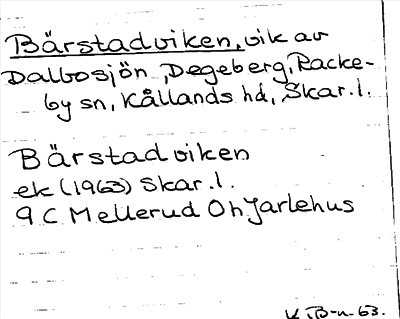 Bärstadviken, vik av
Dalbosjön, Degeberg, Racke-
by sn, Kållands hd, Skar. l.
Bärstadviken
ek (1963) Skar. l.
9 C Mellerud Oh Jarlehus
K B-n-63.